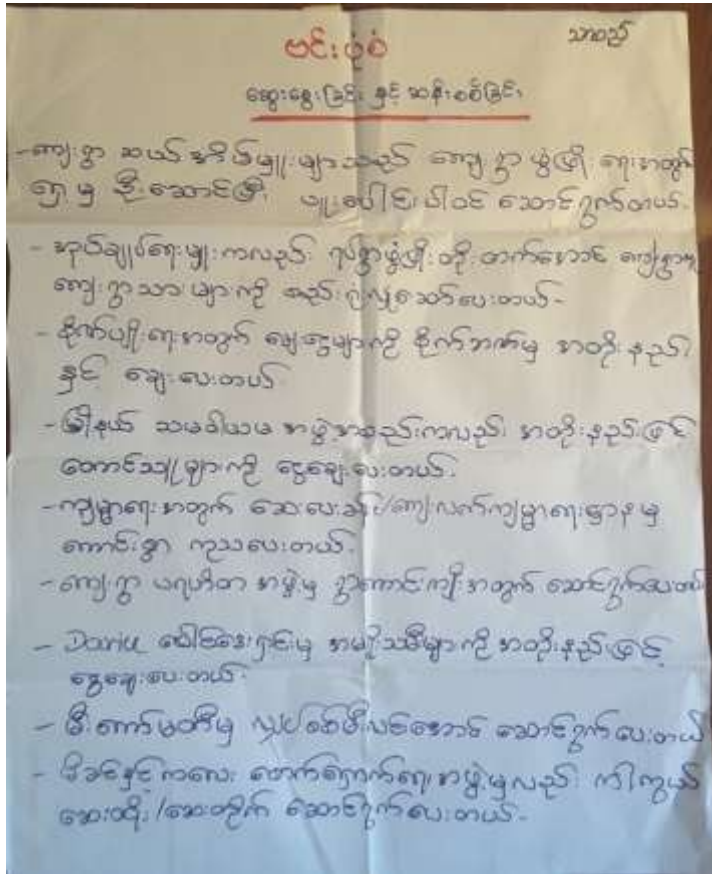 သာစည်
ဗင်းပုံစံ
ဆွေးနွေးခြင်း နှင့် ဆန်းစစ်ခြင်း
- ကျေးရွာ ဆယ်အိမ်မှူးများသည် ကျေးရွာ ဖွံ့ဖြိုးရေးအတွက်
ရှေ့မှ ဦးဆောင်ပြီး ပူးပေါင်းပါဝင် ဆောင်ရွက်တယ်.
- အုပ်ချုပ်ရေးမှူးကလည်း ရပ်ရွာဖွံ့ဖြိုးတိုးတက်အောင်
ကျေးရွာသားများကို စည်းရုံးလှုံ့ဆော်ပေးတယ်-
- စိုက်ပျိုးရေးအတွက် ချေးငွေများကို စိုက်ဘဏ်မှ အတိုးနည်း
နှင့် ချေးပေးတယ်
- မြို့နယ် သမဝါယမ အဖွဲ့အစည်းကလည်း အတိုးနည်းဖြင့်
တောင်သူများကို ငွေချေးပေးတယ်.
- ကျန်းမာရေးအတွက် ဆေးပေးခန်း/ကျေးလက်ကျန်းမာရေးဌာနမှ
ကောင်းစွာ ကုသပေးတယ်.
- ကျေးရွာ ပရဟိတ အဖွဲ့မှ ရွာကောင်းကျိုးအတွက် ဆောင်ရွက်ပေးတယ်
- မှ အမျိုးသမီးများကို အတိုးနည်းဖြင့်
ငွေချေးပေးတယ်.
- မီးကော်မတီမှ လျှပ်စစ်မီးလင်းအောင် ဆောင်ရွက်ပေးတယ်
- မိခင်နှင့်ကလေး စောင့်ရှောက်ရေးအဖွဲ့မှလည်း ကာကွယ်
ဆေးထိုး/ဆေးတိုက် ဆောင်ရွက်ပေးတယ်.